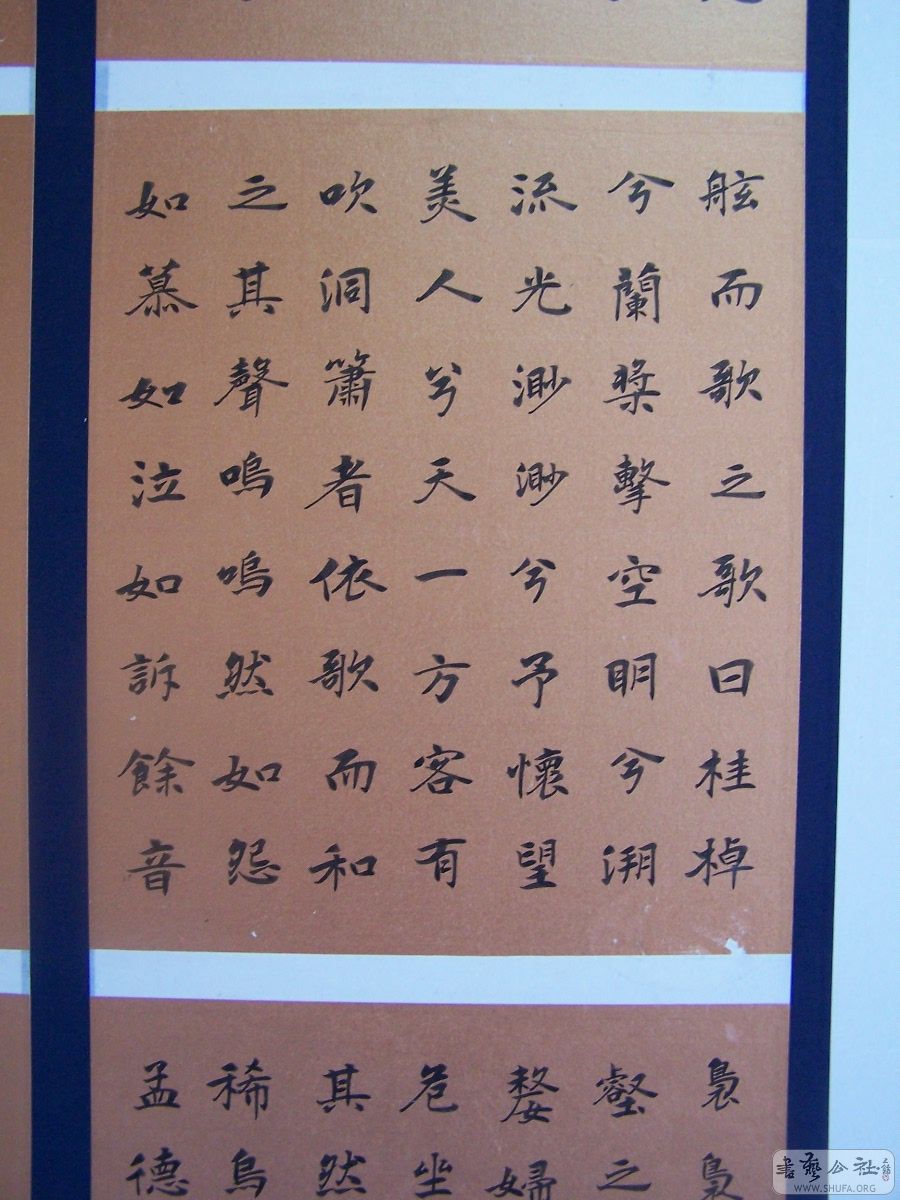 舷而歌之歌曰桂棹
兮蘭槳擊空明兮溯
流光渺渺兮予懷望
美人兮天一方客有
吹洞簫者依歌而和
之其聲嗚嗚然如怨
如慕如泣如訴餘音
裊裊
壑之
嫠婦
危坐
其然
稀烏
孟德
書藝公社
WWW.SHUFA.ORG